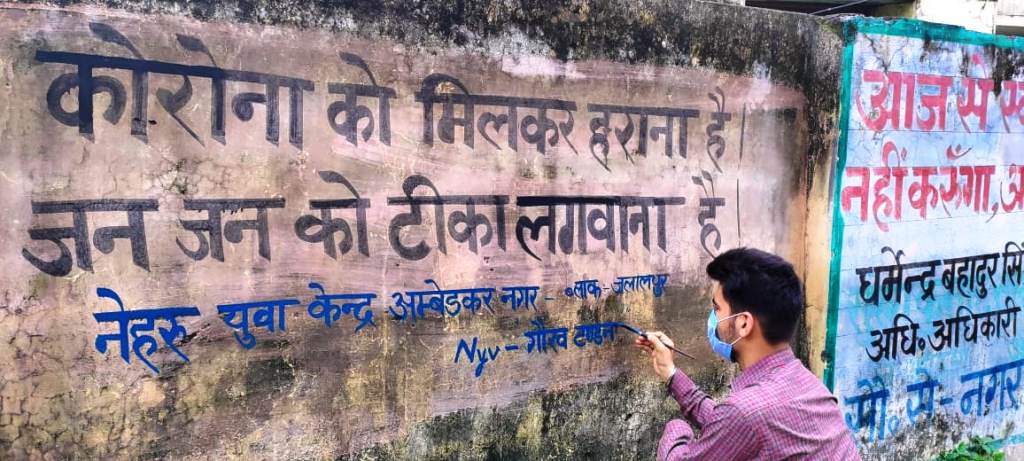 कोरोना को मिलकर हराना है।
जन जन को टीका लगवाना है।
नेहरू युवा केन्द्र अम्बेडकर नगर - ब्लाक - जलालपुर
Nyv - गौरव टण्डन
आज से
नहीं करूँगा,
धर्मेन्द्र बहादुर
अधि॰ अधिकारी
नगर